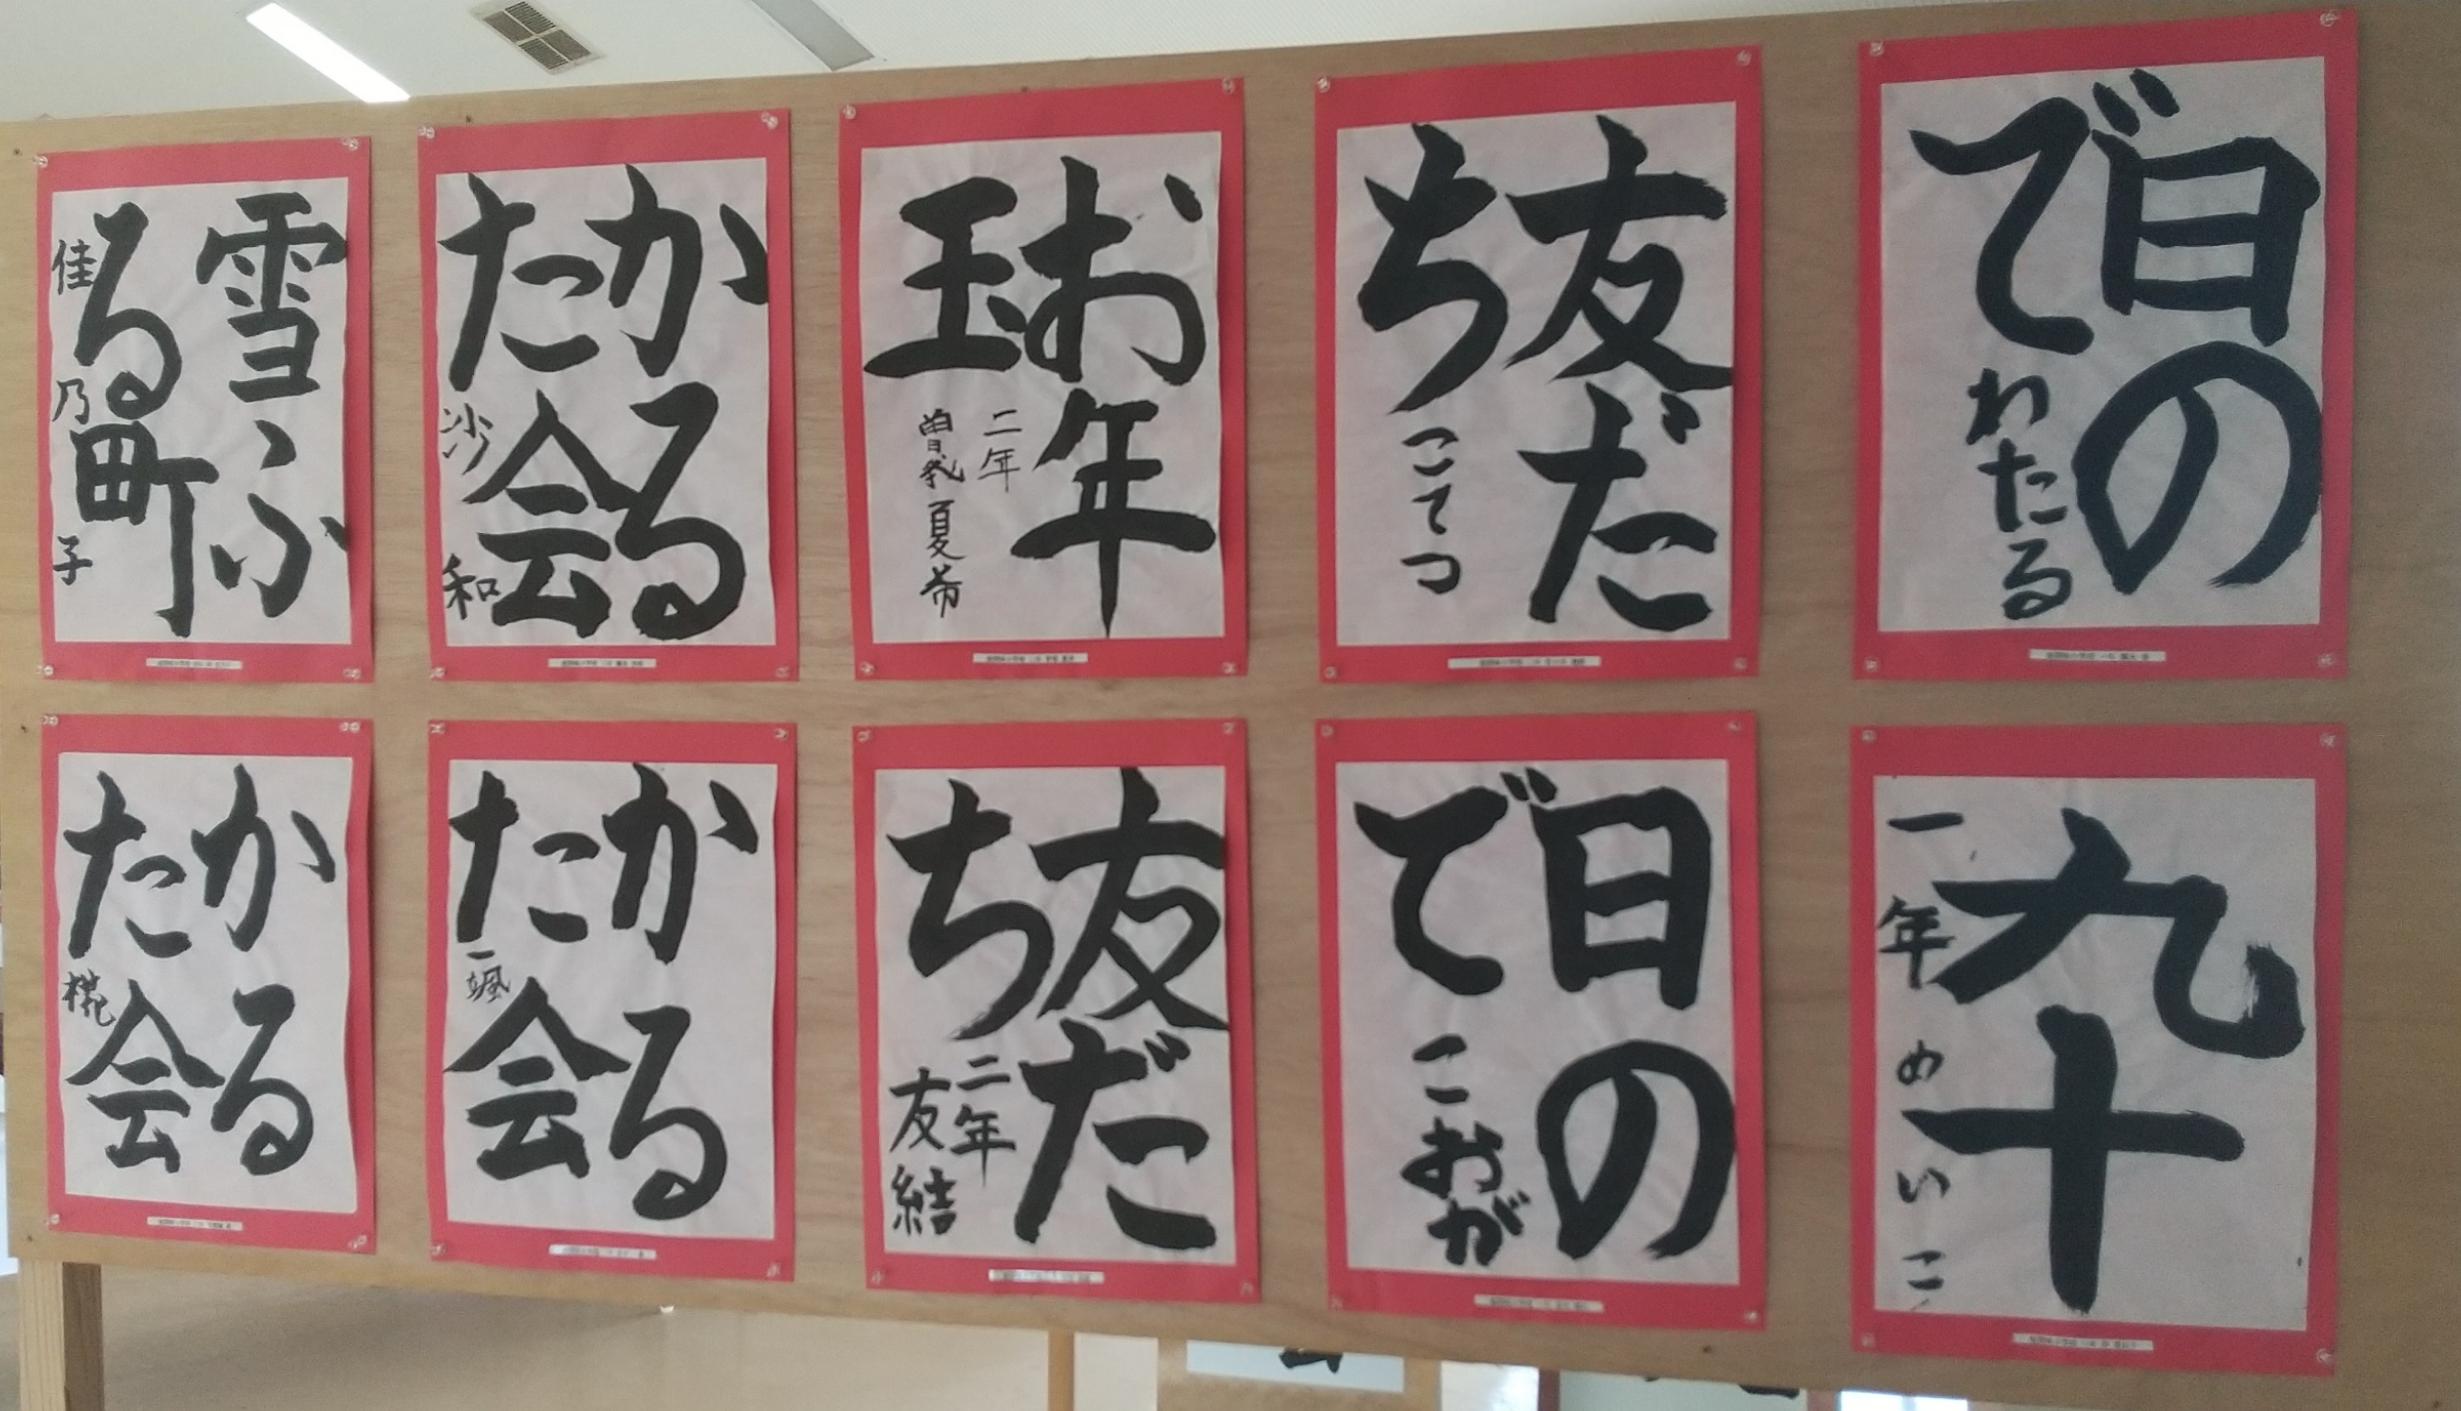 日の
で
わたる
友だ
ち
こてつ
お年
玉
二年
曽我夏希
かる
た会
沙和
雪ふ
る町
佳乃子
九十
一年めいこ
日の
で
こおが
友だ
ち
二年
友結
かる
た会
颯
かる
た会
椛